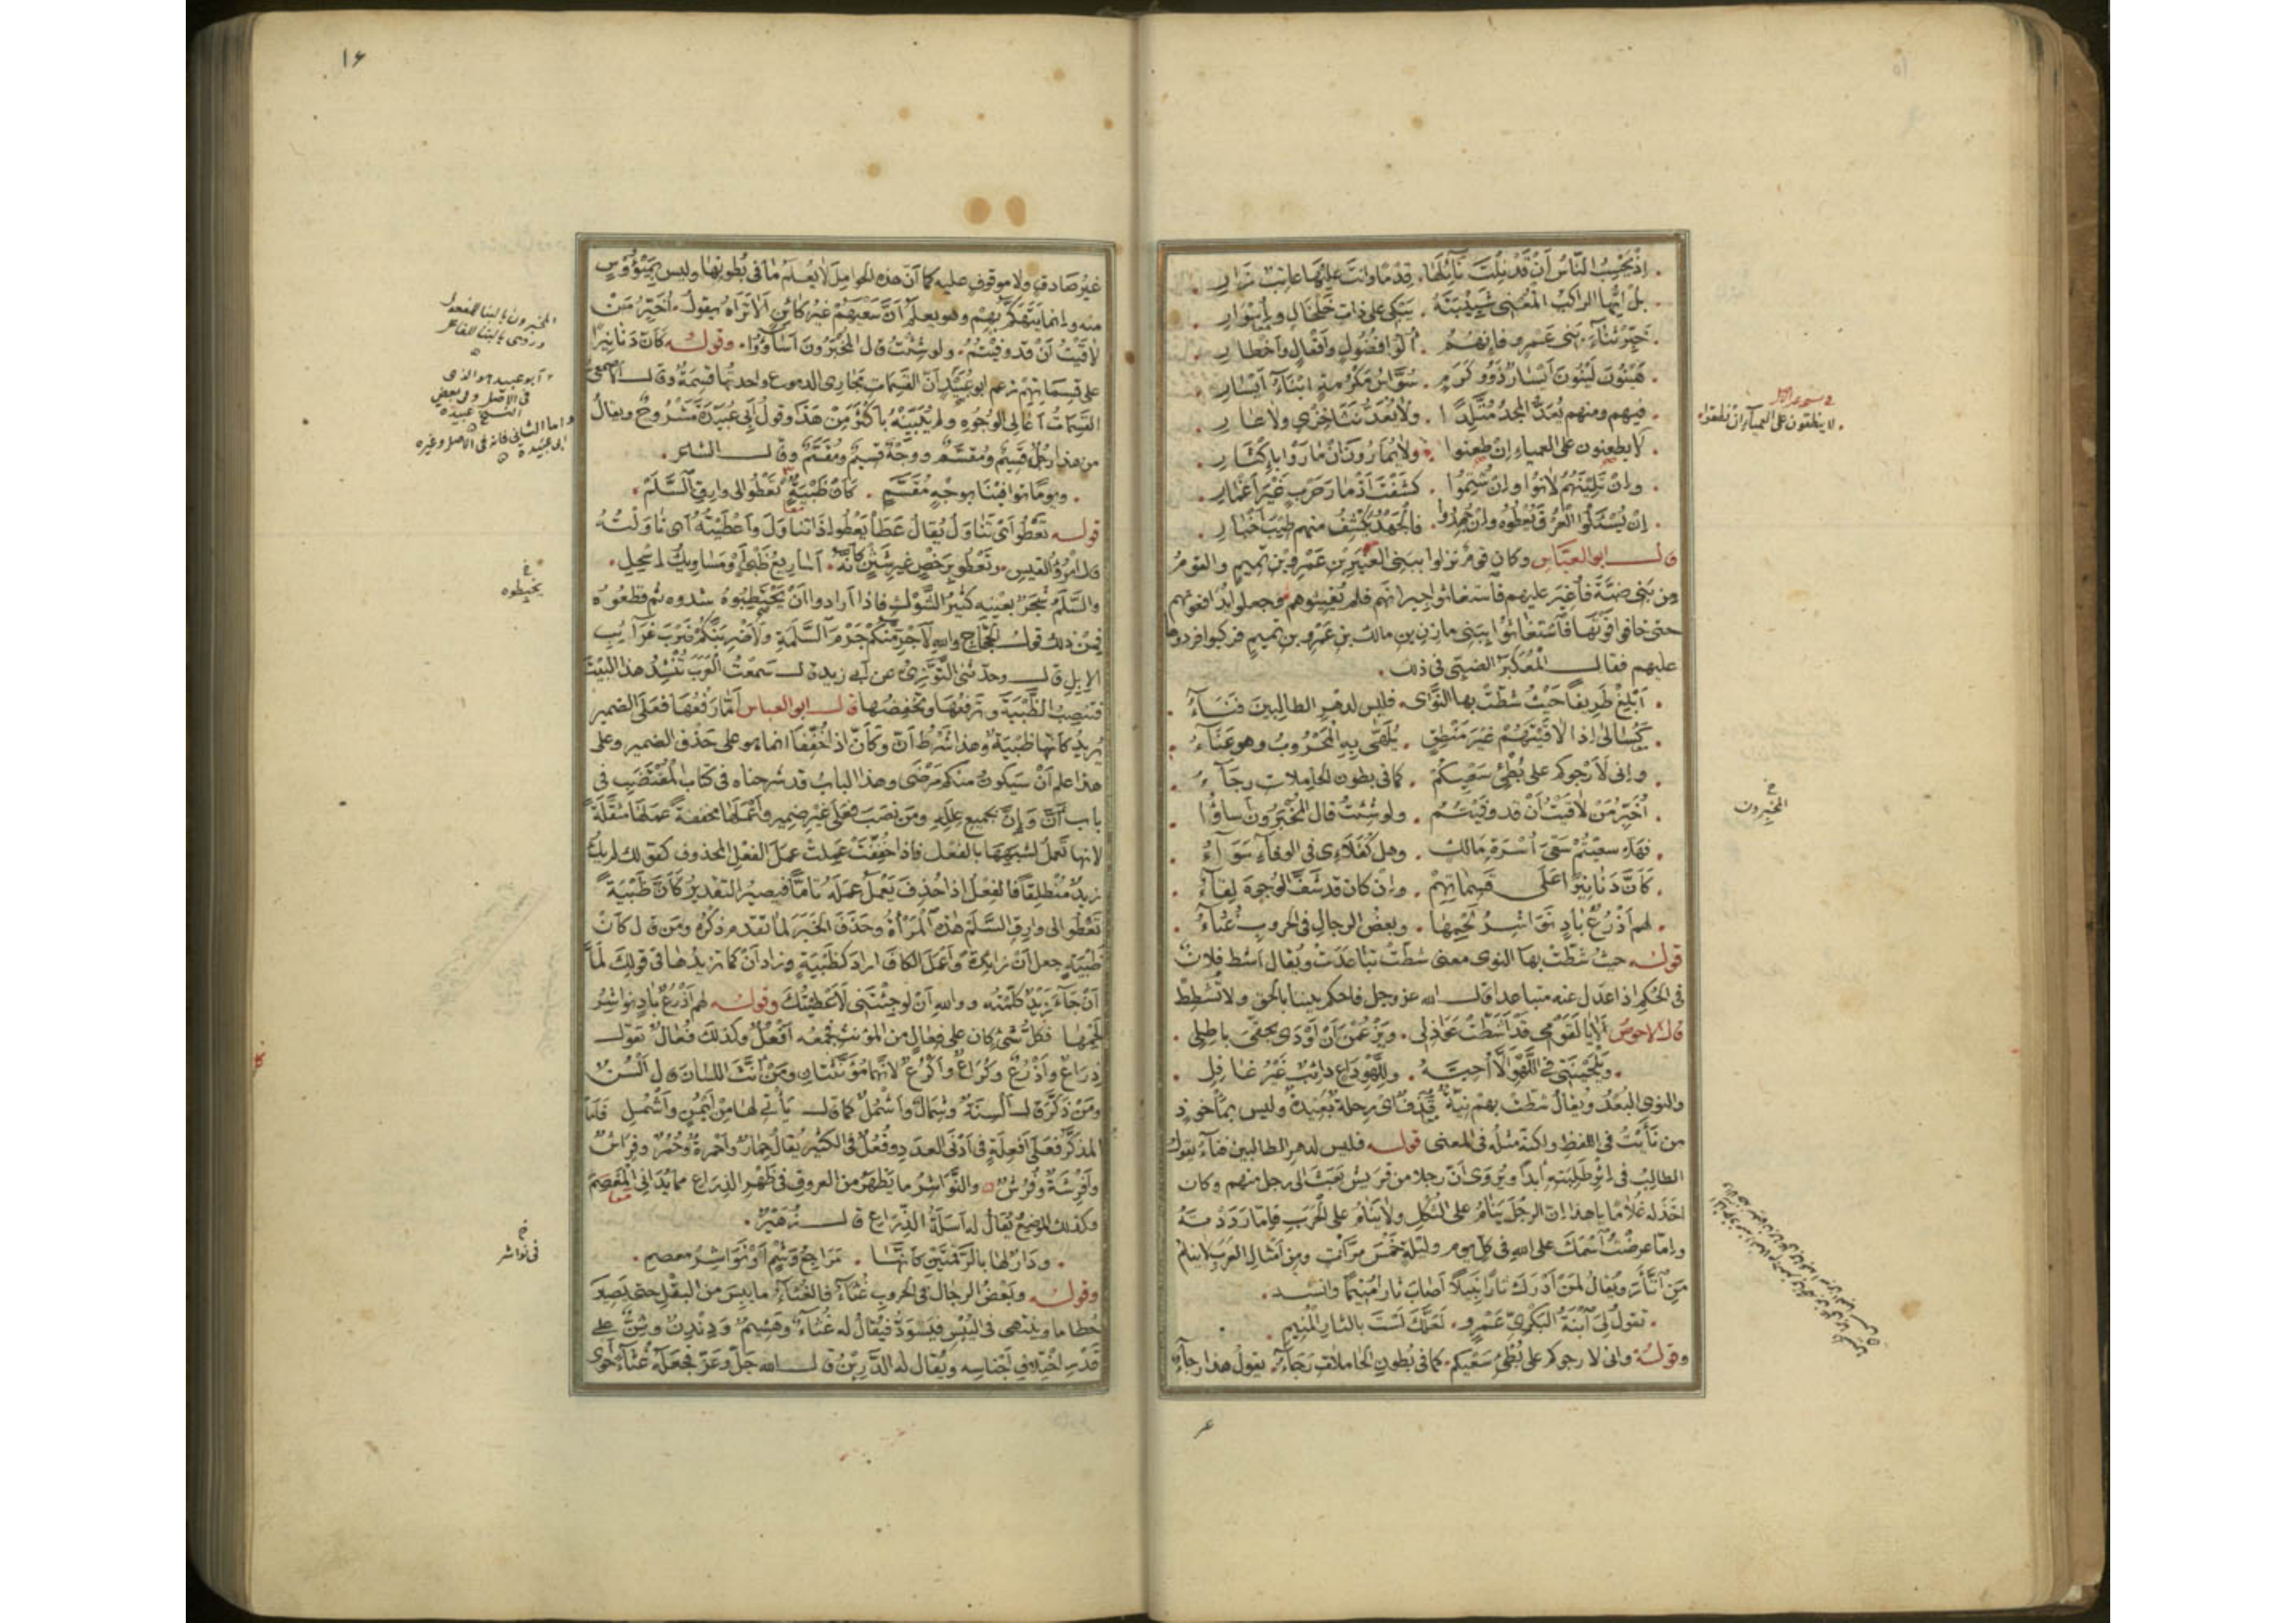 إذ يحسب الناس أن قد نلت نائلها . قدما وانت عليها عاتب زار .
بل ايها الراكب المفني شبيبته . يبكي على ذات خلخال وأسوار .
خبر ثناء بني عمرو فإنهم . أولوا فضول وأنفال وأخطار .
هينون لينون أيسار ذوو كرم . سواس مكرمة ابناء أيسار .
فيهم ومنهم يعد المجد متلدا . ولا يعد نثا خزي ولا عار .
لا يظعنون على العمياء إن ظعنوا . ولا يمارون إن ماروا بإكثار .
وإن تلينتهم لانوا وإن شتموا . كشفت أذمار حرب غير أغمار .
إن يسئلوا العرف يعطوه وإن جهدوا . فالجهد يكشف منهم طيب أخبار .
قال ابو العباس وكان قوم نزلوا ببني العنبر بن عمرو بن تميم والقوم
من بني ضبة فأغير عليهم فاستغاثوا جيرانهم فلم يغيثوهم وجعلوا يدافعونهم
حتى خافوا فوتها فاستغاثوا ببني مازن بن مالك بن عمرو بن تميم فركبوا فردوها
عليهم فقال المعكبر الضبي في ذلك .
. أبلغ طريفا حيث شطت بها النوى . فليس لدهر الطالبين فناء .
. كسالى إذا لاقيتهم غير منطق . يلهى به المحروب وهو عناء .
. وإني لأرجوكم على بطئ سعيكم . كما في بطون الحاملات رجاء .
. أخبر من لاقيت أن قد وفيتم . ولو شئت قال المخبرون أساؤا .
. فهلا سعيتم سعي أسرة مالك . وهل كفلاءي في الوفاء سواء .
. كأن دنانيرا على قسماتهم . وإن كان قد شف الوجوه لقاء .
. لهم أذرع باد نواشر لحمها . وبعض الرجال في الحروب غثاء .
قوله حيث شطت بها النوى معنى شطت تباعدت ويقال أشط فلان
في الحكم اذا عدل عنه متباعدا قال الله عز وجل فاحكم بيننا بالحق ولا تشطط
قال الاحوص ألا يا لقومي قد أشطت عواذلي . ويزعمن أن أودى بحقي باطلي .
. ويلحينني في اللهو ألا أحبه . وللهو داع دائب غير غافل .
والنوى البعد ويقال شطت بهم نية قذف اى رحلة بعيدة وليس بمأخوذ
من نأيت في اللفظ ولكنه مثله في المعنى قوله فليس لدهر الطالبين فناء يقول
الطالب في إثر طلبته أبدا ويروى أن رجلا من قريش بعث الى رجل منهم وكان
اخذ له غلاما يا هذا إن الرجل ينام على الثكل ولا ينام على الحرب فإما رددته
وإما عرضت اسمك على الله في كل يوم وليلة خمس مرات ومن أمثال العرب لا ينام
من اثأر ويقال لمن أدرك ثارا نبيلا أصاب ثارا منيما وانشد .
. تقول لي ابنة البكري عمرو . لعلك لست بالثار المنيم .
وقوله وانى لارجوكم على بطئ سعيكم . كما في بطون الحاملات رجاء . يقول هذا رجاء
لا ينطقون على العمياء إن نطقوا
المخبرون
عر
١۶
غير صادق ولا موقوف عليه كما أن هذه الحوامل لا يعلم ما في بطونها وليس بميئوس
منه وإنما يتهكم بهم وهو يعلم أن سعيهم غير كائن الا تراه يقول . أخبر من
لاقيت أن قد وفيتم . ولو شئت قال المخبرون أساؤوا . وقوله كأن دنانيرا
على قسماتهم زعم ابو عبيد أن القسمات مجارى الدموع واحدتها قسمة وقال الأصمعي
القسمات أعالى الوجوه ولم يبينه بأكثر من هذا وقول أبي عبيدة مشروح ويقال
من هذا رجل قسيم ومقسم ووجه قسيم ومقسم وقال الشاعر .
. ويوما توافينا بوجه مقسم . كأن ظبية تعطو الى وارق السلم .
قوله تعطو أى تناول يقال عطا يعطو إذا تناول وأعطيته أى ناولته
قال امرؤ القيس . وتعطو برخص غير شثن كأنه . أساريع ظبي أو مساويك إسحل .
والسلم شجر بعينه كثير الشوك فاذا أرادوا أن يحتطبوه شدوه ثم قطعوه
فمن ذلك قول الحجاج والله لأحزمنكم حزم السلمة ولأضربنكم ضرب غرايب
الإبل قال وحدثني التوزي عن أبي زيد قال سمعت العرب تنشد هذا البيت
فتنصب الظبية وترفعها وتخفضها قال ابو العباس أما رفعها فعلى الضمير
يريد كأنها ظبية وهذا شرط أن وكأن اذا خففا انما هو على حذف الضمير وعلى
هذا علم أن سيكون منكم مرضى وهذا الباب قد شرحناه في كتاب المقتضب في
باب أن وإن بجميع علله ومن نصب فعلى غير ضمير وأعملها مخففة عملها مثقلة
لانها تعمل لشبهها بالفعل فاذا خففت عملت عمل الفعل المحذوف كقولك لم يك
زيد منطلقا فالفعل إذا حذف يعمل عمله تاما فيصير التقدير كأن ظبية
تعطو الى وارق السلم هذه المرأة وحذف الخبر لما تقدم من ذكره ومن قال كأن
ظبية جعل أن زائدة وأعمل الكاف اراد كظبية وزاد أن كما تزيدها في قولك لما
أن جاء زيد كلمته ووالله أن لو جئتني لأعطيتك وقوله لهم أذرع باد نواشر
لحمها فكل شئ كان على فعال من المؤنث فجمعه أفعل وكذلك فعال تقول
ذراع وأذرع وكراع وأكرع لانهما مؤنثتان ومن أنث اللسان قال ألسن
ومن ذكر قال ألسنة وشمال وأشمل كما قال يأتي لها من أيمن وأشمل فأما
المذكر فعلى أفعلة في أدنى العدد وفعل في الكثير يقال حمار وأحمرة وحمر وفراش
وأفرشة وفرش والنواشر ما يظهر من العروق في ظهر الذراع مما يدانى المعصم
وكذلك الموضع يقال له أسلة الذراع قال زهير .
. ودار لها بالرقمتين كأنها . مراجع وشم في نواشر معصم .
وقوله وبعض الرجال في الحروب غثاء فالغثاء ما يبس من البقل حتى يصير
حطاما وينتهى في اليبس فيسود فيقال له غثاء وهشيم ودندن وثن على
قدر اختلاف أجناسه ويقال له الدرين قال الله جل وعز فجعله غثاء أحوى
المخبرون بالبنا للمفعول
وروى بالبنا للفاعل
أبو عبيد هو الذى
في الاصل وفى بعض
النسخ عبيدة
واما الثاني فانه في الاصل وغيره
ابى عبيدة
يخبطوه
في نواشر